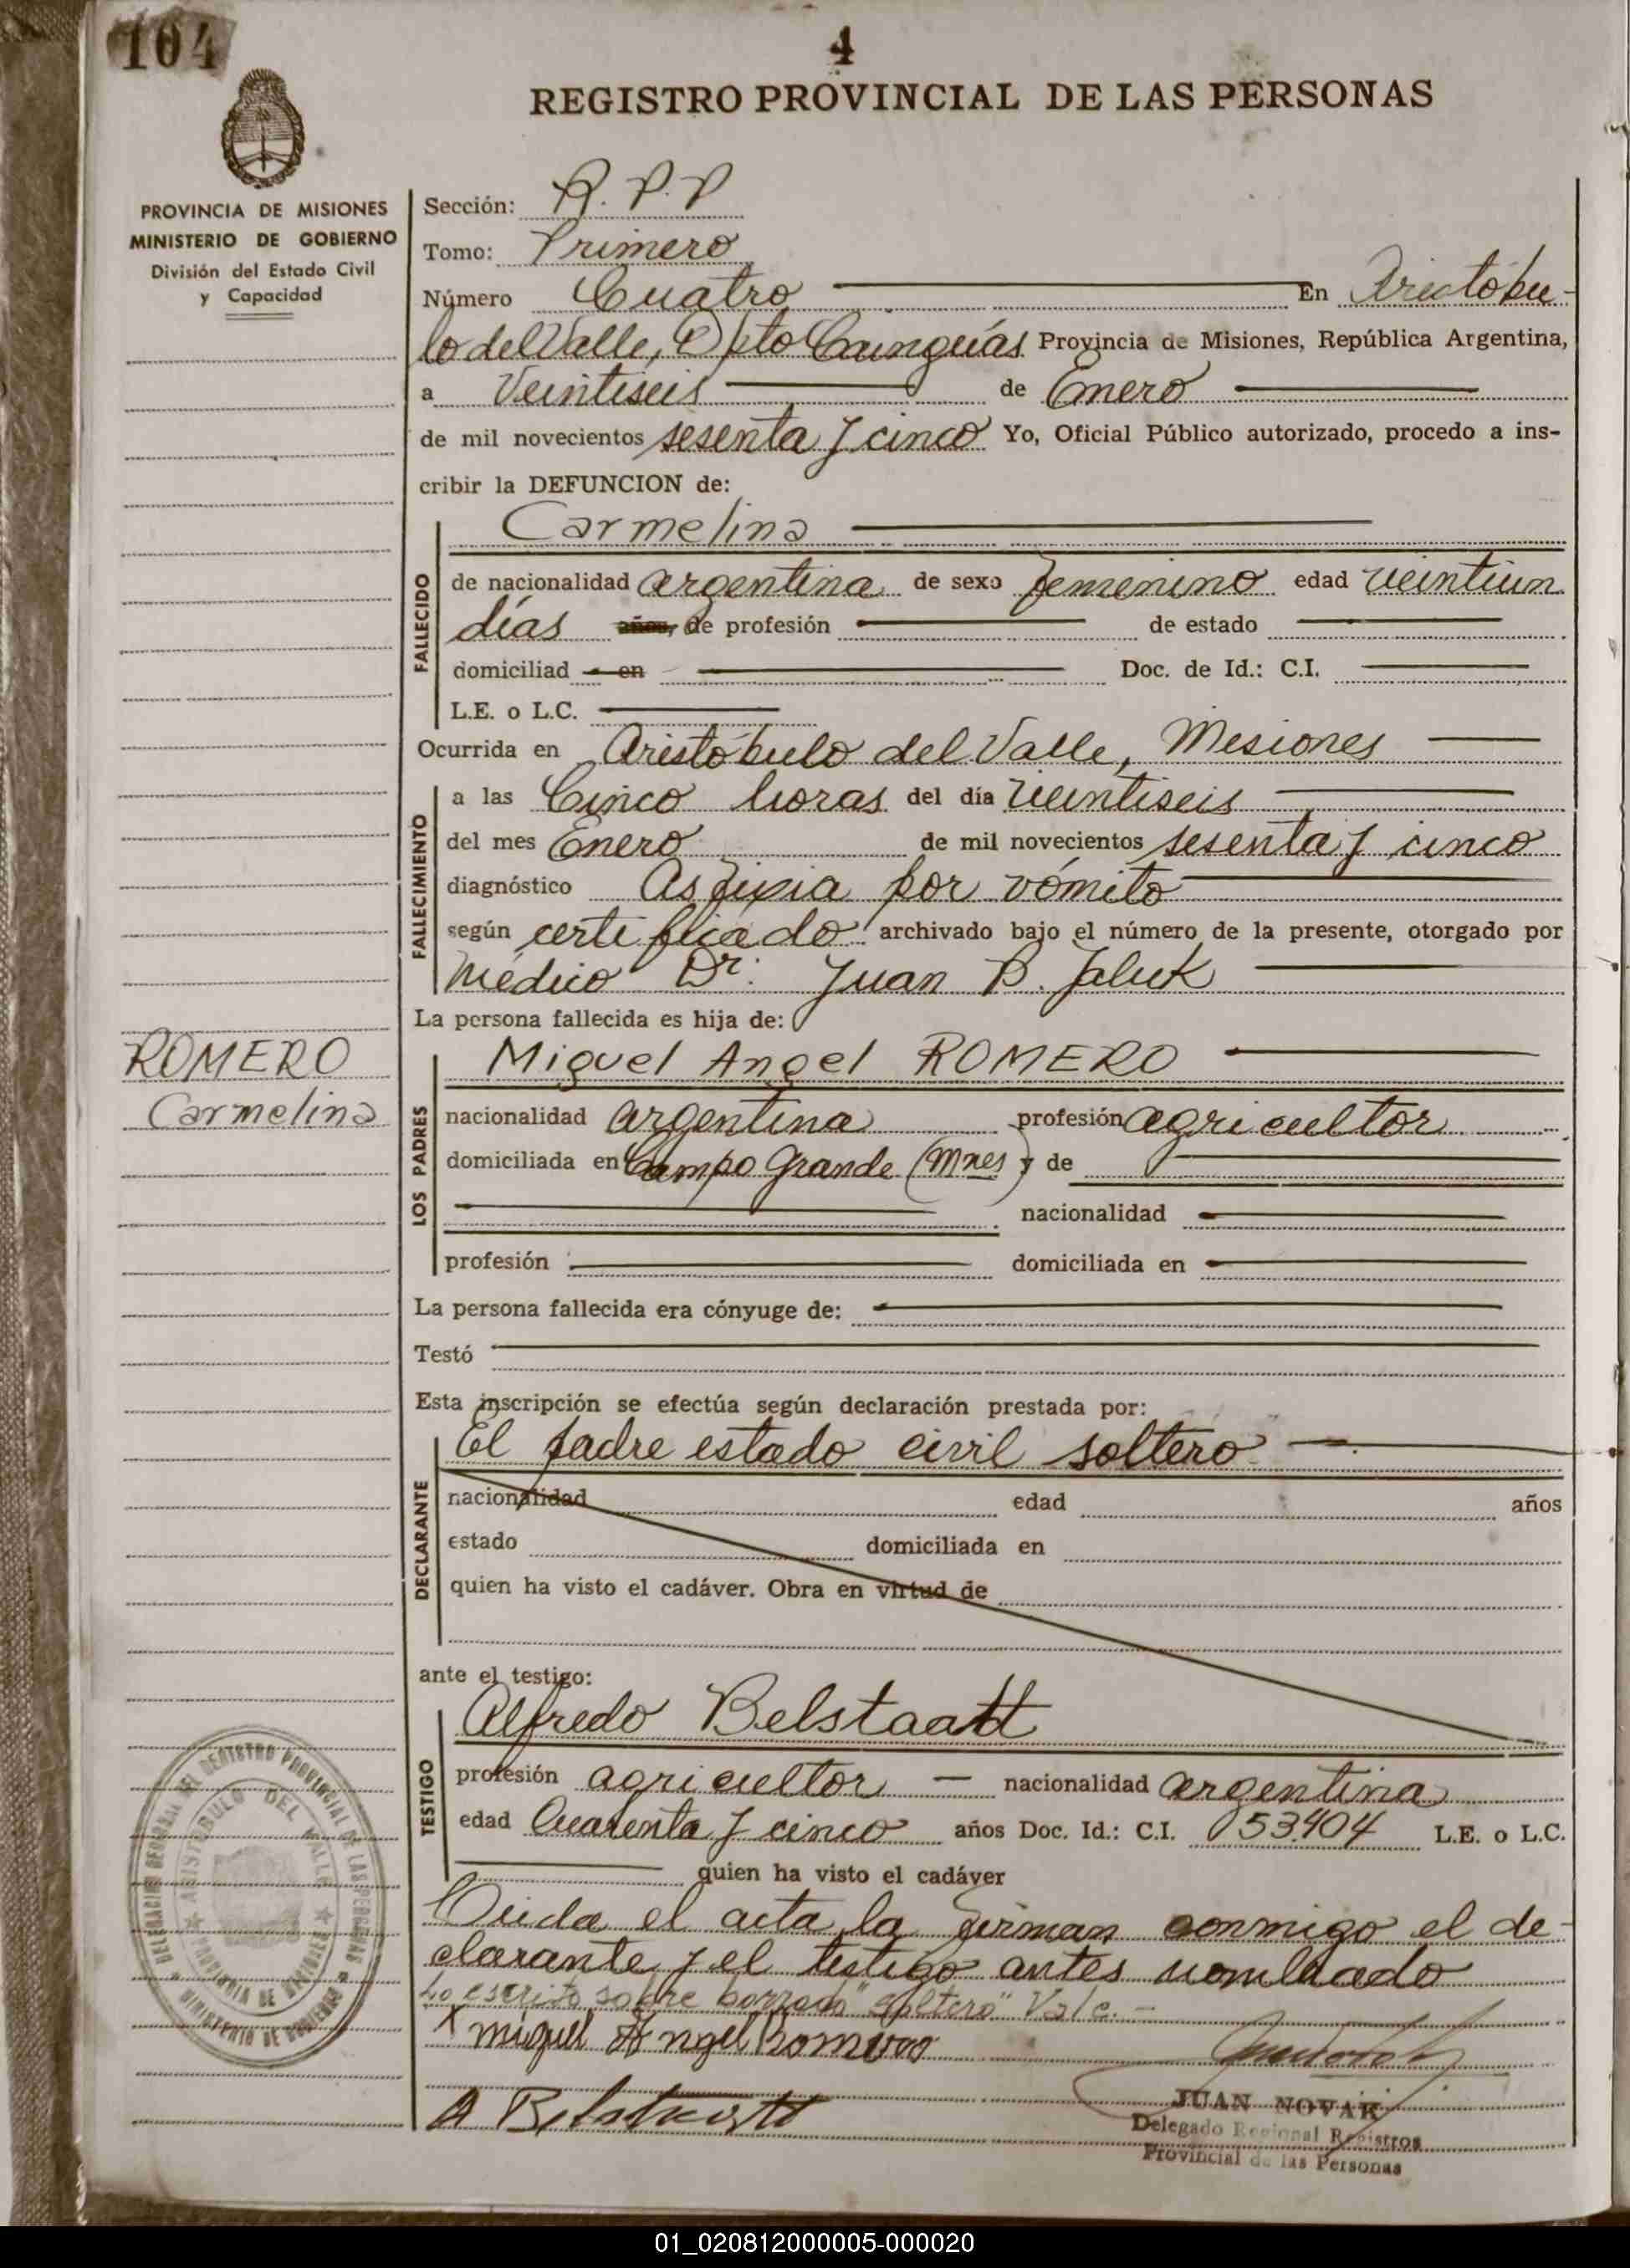 104
4
REGISTRO PROVINCIAL DE LAS PERSONAS
PROVINCIA DE MISIONES
MINISTERIO DE GOBIERNO
División del Estado Civil
y Capacidad
Sección: R.P.P
Tomo: Primero
Número Cuatro En Aristóbu-
lo del Valle, Dpto Cainguás Provincia de Misiones, República Argentina,
a Veintiseis de Enero
de mil novecientos sesenta y cinco Yo, Oficial Público autorizado, procedo a ins-
cribir la DEFUNCION de:
FALLECIDO
Carmelina
de nacionalidad argentina de sexo femenino edad veintiun
días años, de profesión de estado
domiciliad en Doc. de Id.: C.I.
L.E. o L.C.
Ocurrida en Aristóbulo del Valle, Misiones
FALLECIMIENTO
a las Cinco horas del día veintiseis
del mes Enero de mil novecientos sesenta y cinco
diagnóstico Asfixia por vómito
según certificado archivado bajo el número de la presente, otorgado por
médico Dr. Juan B. Jaluk
La persona fallecida es hija de:
ROMERO
Carmelina
LOS PADRES
Miguel Angel ROMERO
nacionalidad argentina profesión agricultor
domiciliada en Campo Grande (Mnes) y de
nacionalidad
profesión domiciliada en
La persona fallecida era cónyuge de:
Testó
Esta inscripción se efectúa según declaración prestada por:
DECLARANTE
El padre estado civil soltero
nacionalidad edad años
estado domiciliada en
quien ha visto el cadáver. Obra en virtud de
ante el testigo:
TESTIGO
Alfredo Belstaadt
profesión agricultor nacionalidad argentina
edad Cuarenta y cinco años Doc. Id.: C.I. 53.404 L.E. o L.C.
quien ha visto el cadáver
Oida el acta la firman conmigo el de-
clarante y el testigo antes nombrado
Lo escrito sobre borrado "soltero" Vale.-
X Miguel Angel Romero
JUAN NOVAK
Delegado Regional Registros
Provincial de las Personas
DELEGACION REGIONAL DEL REGISTRO PROVINCIAL DE LAS PERSONAS
MINISTERIO DE GOBIERNO
ARISTOBULO DEL VALLE
PROVINCIA DE MISIONES
01_020812000005-000020